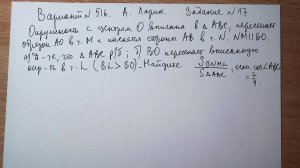 Вариант № 516. А. Ларин. Задание № 17.
Окружность с центром O вписана в △ ABC, пересекает
отрезок AO в т. M и касается стороны AB в т. N, NM || BO.
а) Д-те, что △ ABC р/б; б) BO пересекает вписанную
окр-ть в т. L (BL > BO). Найдите S BNML / S △ABC, если cos∠ABC
= 7/9.